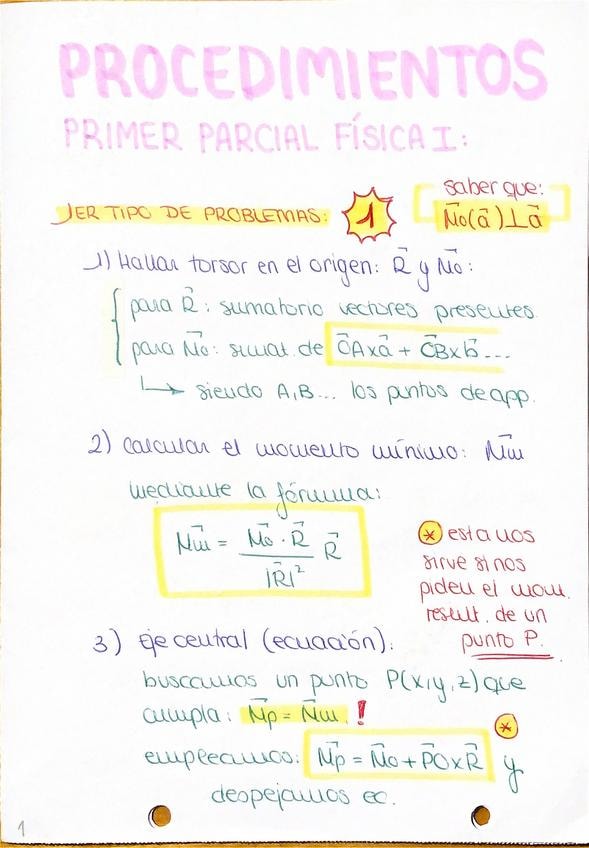 PROCEDIMIENTOS
PRIMER PARCIAL FÍSICA I:
saber que:
1ER TIPO DE PROBLEMAS: 1 M⃗o(a⃗)⊥a⃗
1) Hallar torsor en el origen: R⃗ y M⃗o:
para R⃗: sumatorio vectores presentes.
para M⃗o: sumat. de O⃗A x a⃗ + O⃗B x b⃗ ...
↳ siendo A, B... los puntos de app.
2) calcular el momento mínimo: M⃗m
mediante la fórmula:
M⃗m = (M⃗o · R⃗) / |R⃗|² R⃗
* esta nos
sirve si nos
piden el mom.
result. de un
punto P.
3) Eje central (ecuación):
buscamos un punto P(x,y,z) que
cumpla: M⃗p = M⃗m !
empleamos: M⃗p = M⃗o + P⃗O x R⃗ * y
despejamos ec.
1